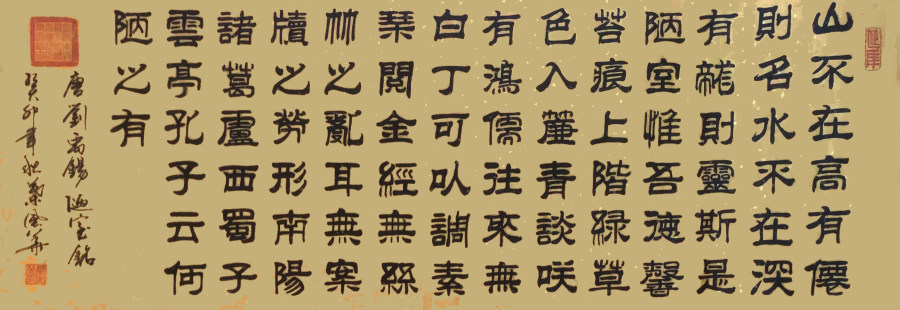 山不在高有僊
則名水不在深
有龍則靈斯是
陋室惟吾德馨
苔痕上階緑草
色入簾青談咲
有鴻儒往來無
白丁可以調素
琹閲金經無絲
竹之亂耳無案
牘之勞形南陽
諸葛盧西蜀子
雲亭孔子云何
陋之有
唐劉禹錫陋室銘
癸卯年秋